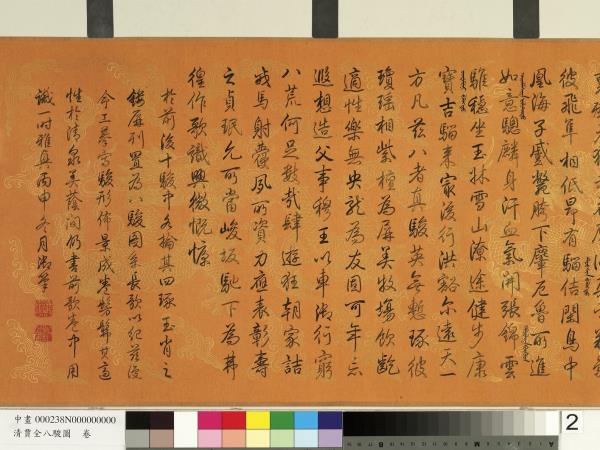 彼飛隼相低昂有騮佶閑鳥中
凰海子盛鬣胯下摩尼魯所進
如意驄麟身汗血氣開張錦雲
騅穩坐玉牀雪山潦途健步康
寶吉騮來家後行洪豁爾遠天一
方凡茲八者真駿英無慙琢彼
瓊瑤相紫檀為屏美牧塲飲齕
適性樂無央龍為友固可年忘
遐想造父事穆王以車御行窮
八荒何足數哉肆遊狂朝家詰
戎馬射夙所資力應表彰壽
之貞珉允可當峻坂馳下為
徨作歌識興徵慨慷
於前後十駿中各掄其四琢玉肖之
鏤屏列置為八駿圖系長歌以紀茲復
命工摹寫駿形佈景成卷髣髴其適
性於清泉美蔭間仍書前歌卷中用
識一時雅興丙申冬月御筆
中畫 000238N000000000
清賈全八駿圖 卷
2